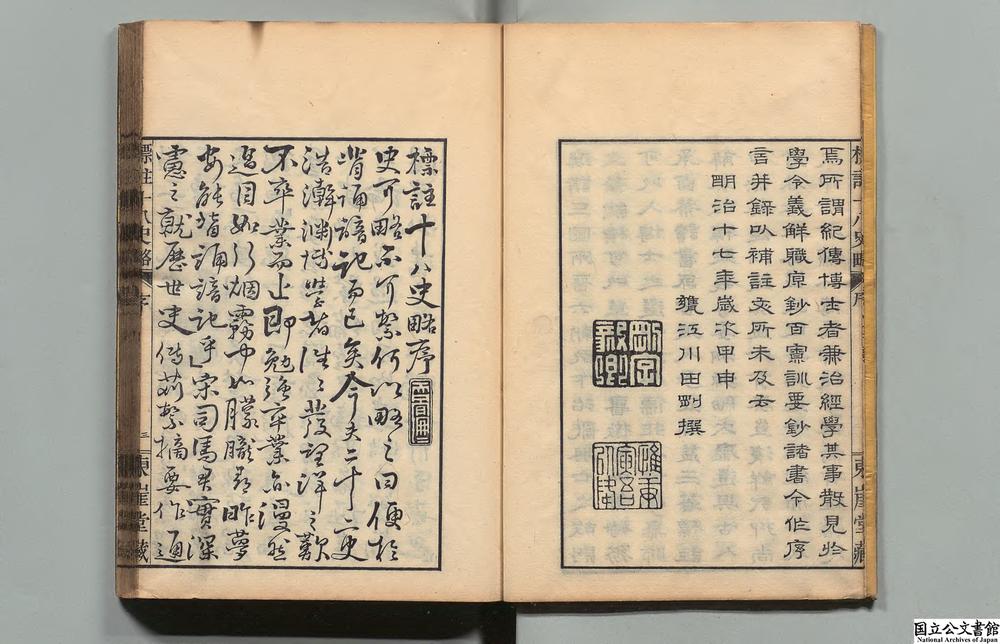 焉所謂紀傳博士者兼治經學其事散見於
學令義解職原鈔百寮訓要鈔諸書今作序
言并錄以補註文所未及云
明治十七年歲次甲申
甕江川田剛撰
剛字毅卿
標註十八史略序
史可略不可繁何以略之曰便於
背誦諳記而已矣今夫二十二史
浩瀚淵博學者往々發望洋之歎
不卒業而止即勉強卒業亦漫然
過目如行烟霧中如朦朧尋昨夢
安能背誦諳記乎宋司馬君實深
慮之就歷世史傳芟繁摘要作通
標註十八史略 序 三 東崖堂藏
国立公文書館
National Archives of Japan